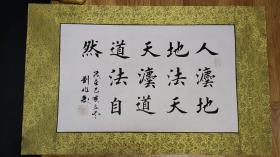 人灋地
地法天
天灋道
道法自
然
己亥
劉